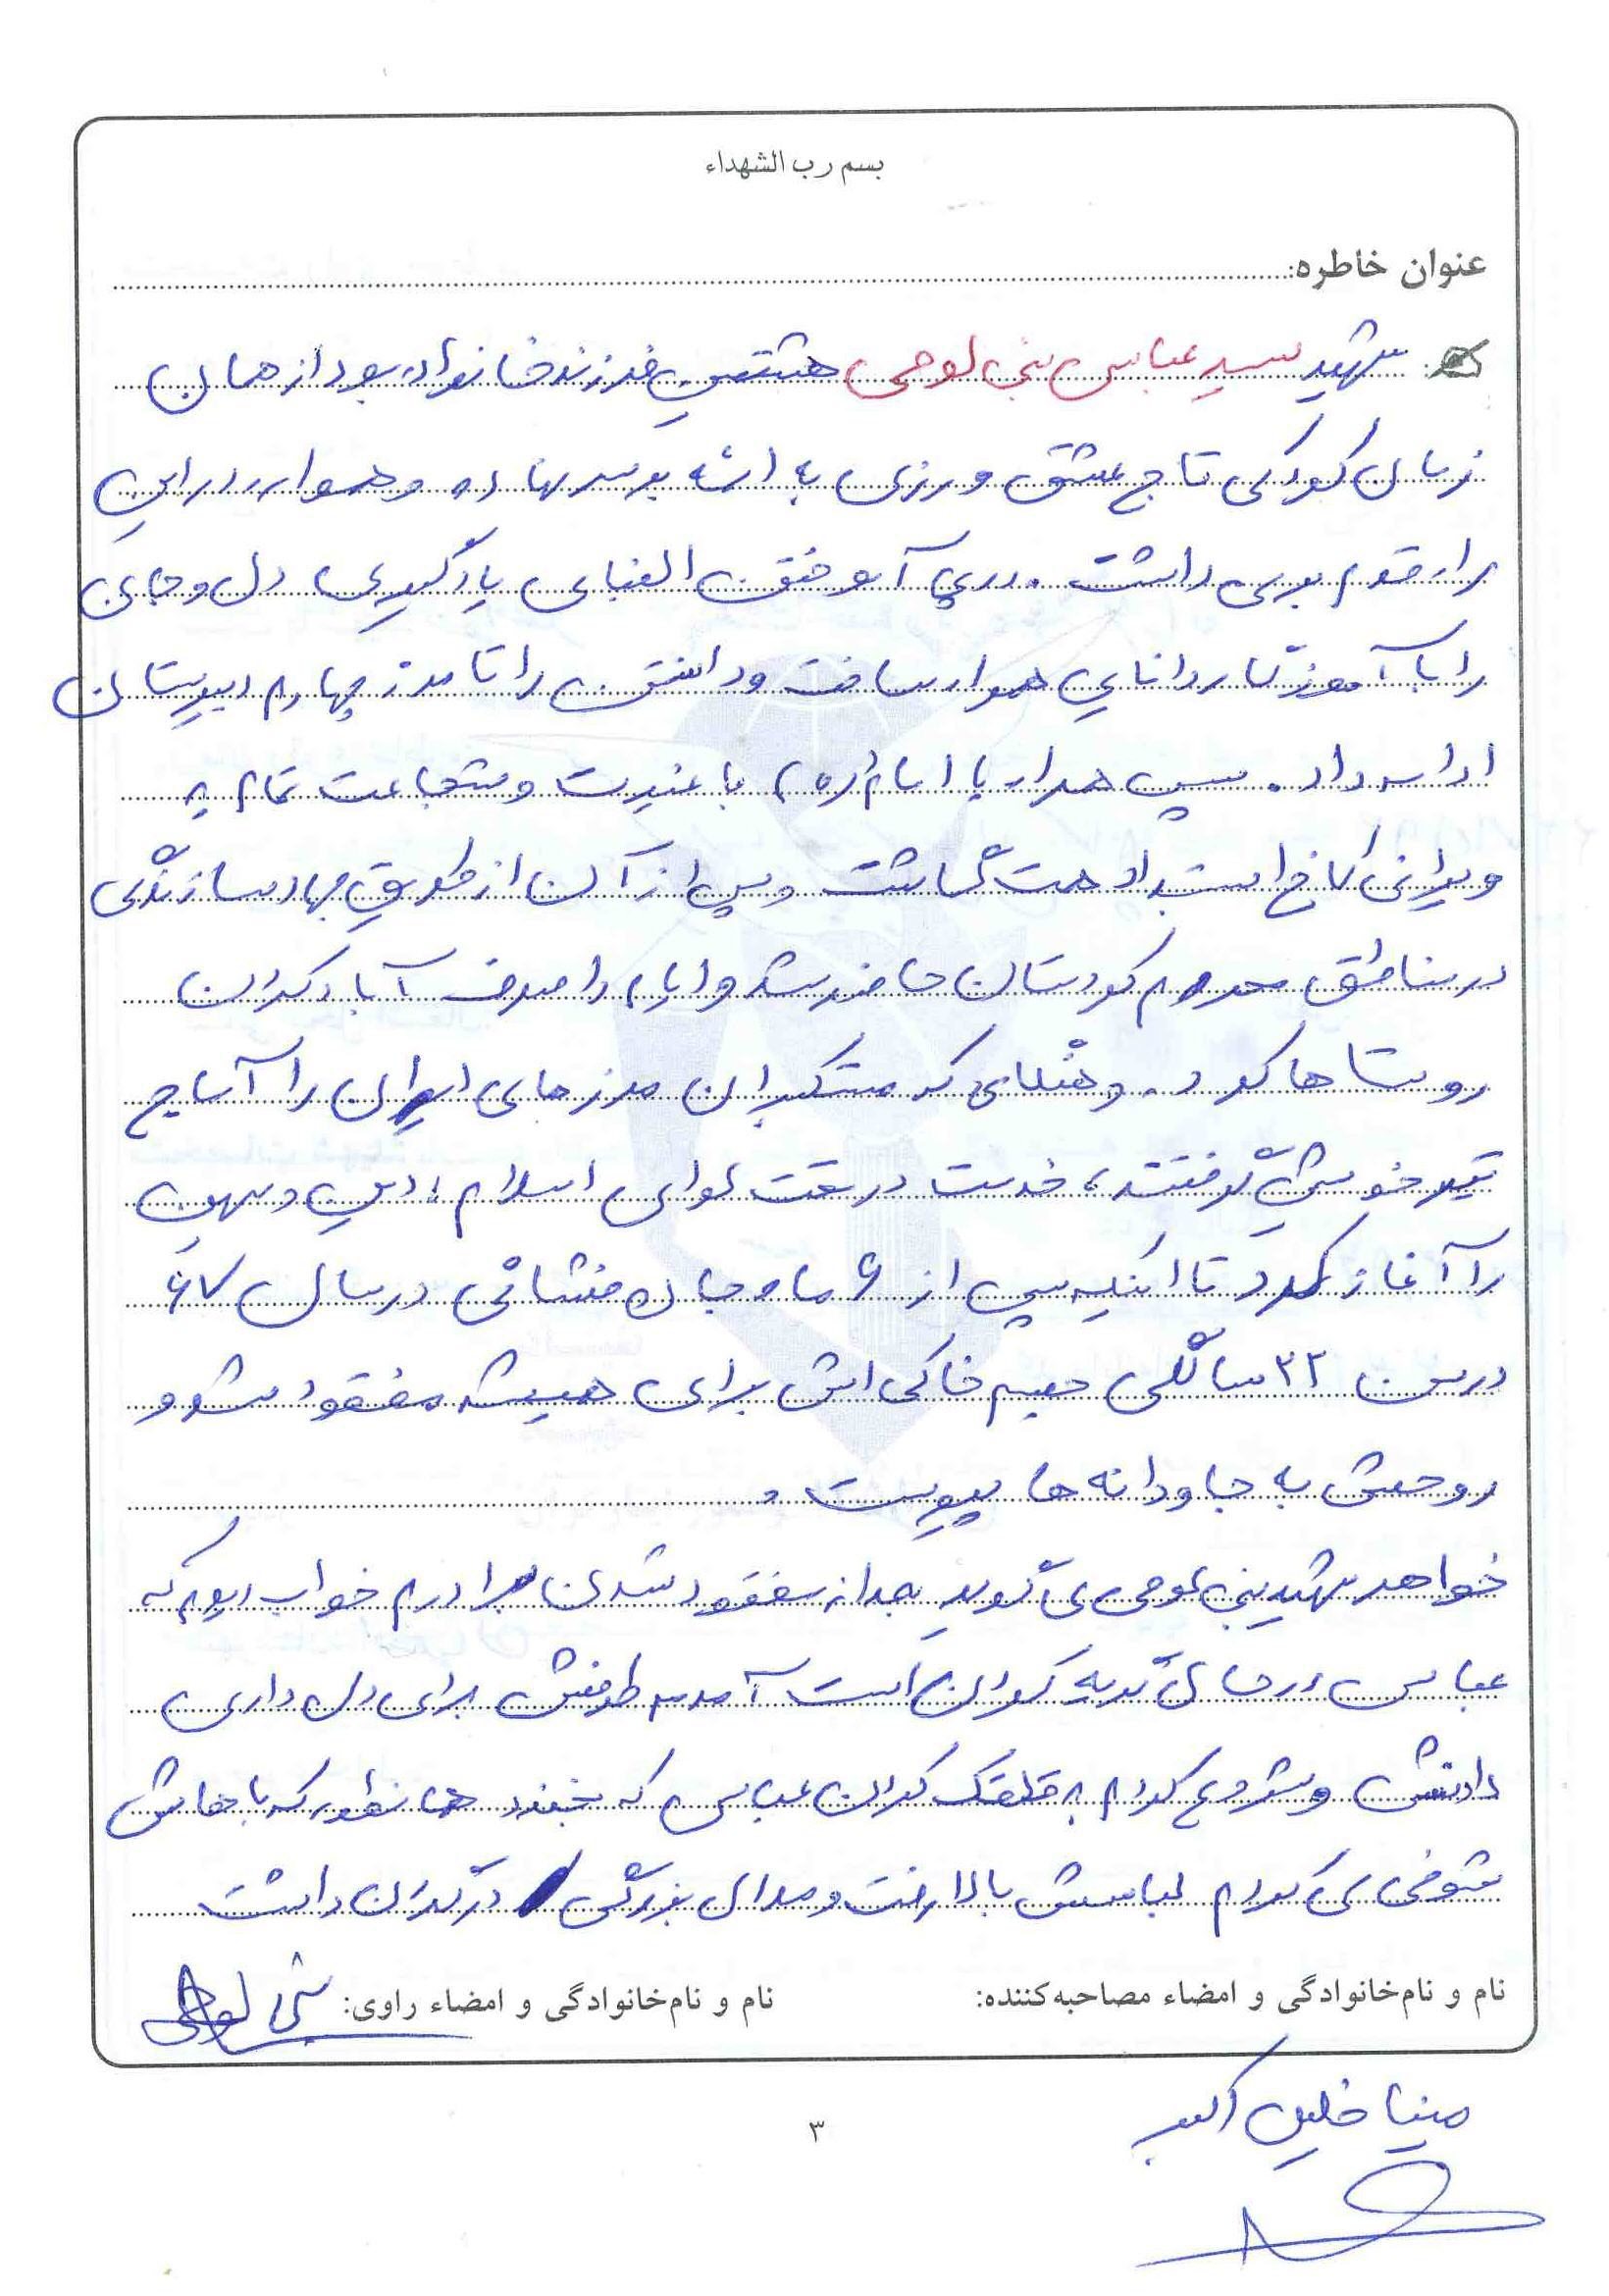 بسم رب الشهداء
عنوان خاطره:
شهید سید عباس بنی لوحی هشتمین فرزند خانواده بود از همان
زمان کودکی تاج عشق ورزی به ائمه بر سر نهاده و همواره در این
راه قدم بر می داشت. در پی آموختن الفبای یادگیری دل و جان
را با آموزگار دانایی هموار ساخت و دانستن را تا مرز چهارم دبیرستان
ادامه داد. سپس همراه با امام (ره) با غیرت و شجاعت تمام به
ویرانی کاخ استبداد همت گماشت و پس از آن از طریق جهاد سازندگی
در مناطق محروم کردستان حاضر شد و ایام را صرف آباد کردن
روستاها کرد. و هنگامی که مستکبران مرزهای ایران را آماج
تیر خویش گرفتند، خدمت در تحت لوای اسلام، دین و میهن
را آغاز کرد تا اینکه پس از ۶ ماه جان فشانی در سال ۶۷
در سن ۳۲ سالگی جسم خاکی اش برای همیشه مفقود شد و
روحش به جاودانه ها پیوست.
خواهر شهید بنی لوحی می گوید بعد از مفقود شدن برادرم خواب دیدم که
عباس در حال گریه کردن است آمدم طرفش برای دل داری
دادنش و شروع کردم به قلقلک کردن عباس که بخندد همانطور که باهاش
شوخی می کردم لباسش بالا رفت و مدال بزرگی در گردن داشت
نام و نام‌خانوادگی و امضاء مصاحبه‌کننده:
نام و نام‌خانوادگی و امضاء راوی: بنی لوحی
مینا خلیل اکبر
۳